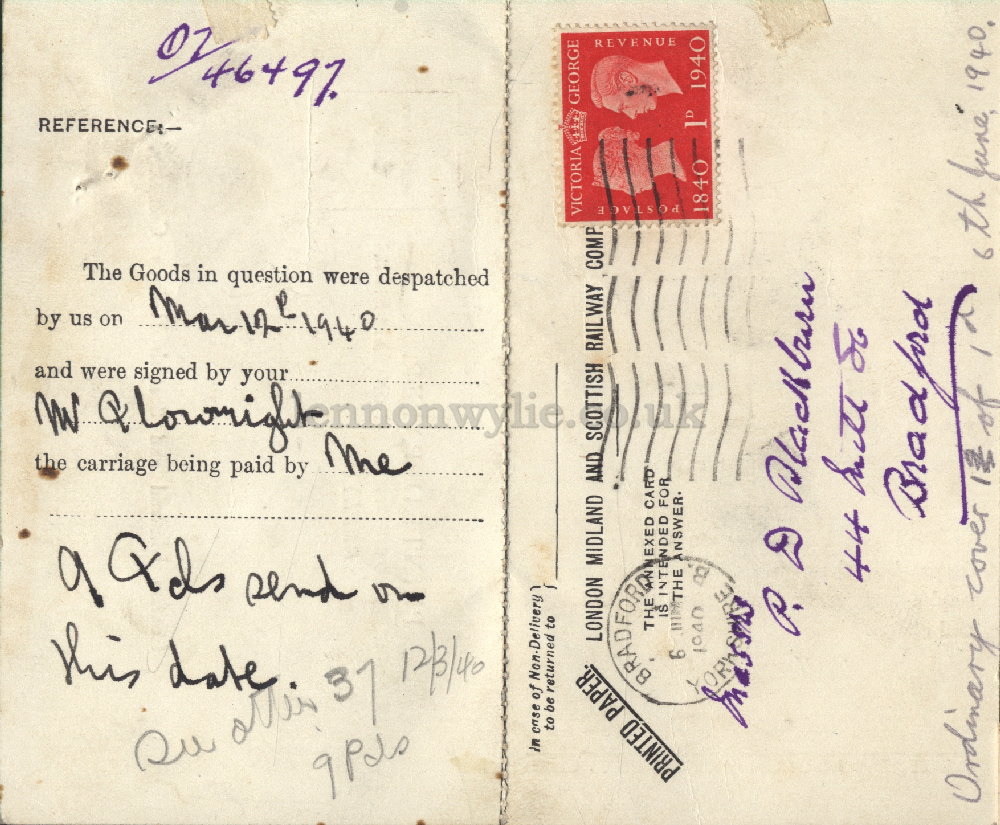 07/46497.
REFERENCE:—
The Goods in question were despatched
by us on Mar 12 1940
and were signed by your
Mr Plowright
the carriage being paid by Me
9 Pds send on
this date.
12/3/40
37
9 Pds
lennonwylie.co.uk
POSTAGE REVENUE
VICTORIA GEORGE
1840 1D 1940
LONDON MIDLAND AND SCOTTISH RAILWAY COMP
THE ANNEXED CARD
IS INTENDED FOR
THE ANSWER.
(In case of Non-Delivery
to be returned to)
PRINTED PAPER.
BRADFORD
6 JUN
1940
YORKSHIRE
B.
Messrs
P. D Blackburn
44 Mill St
Bradford
Ordinary cover of 1d 6th June, 1940.